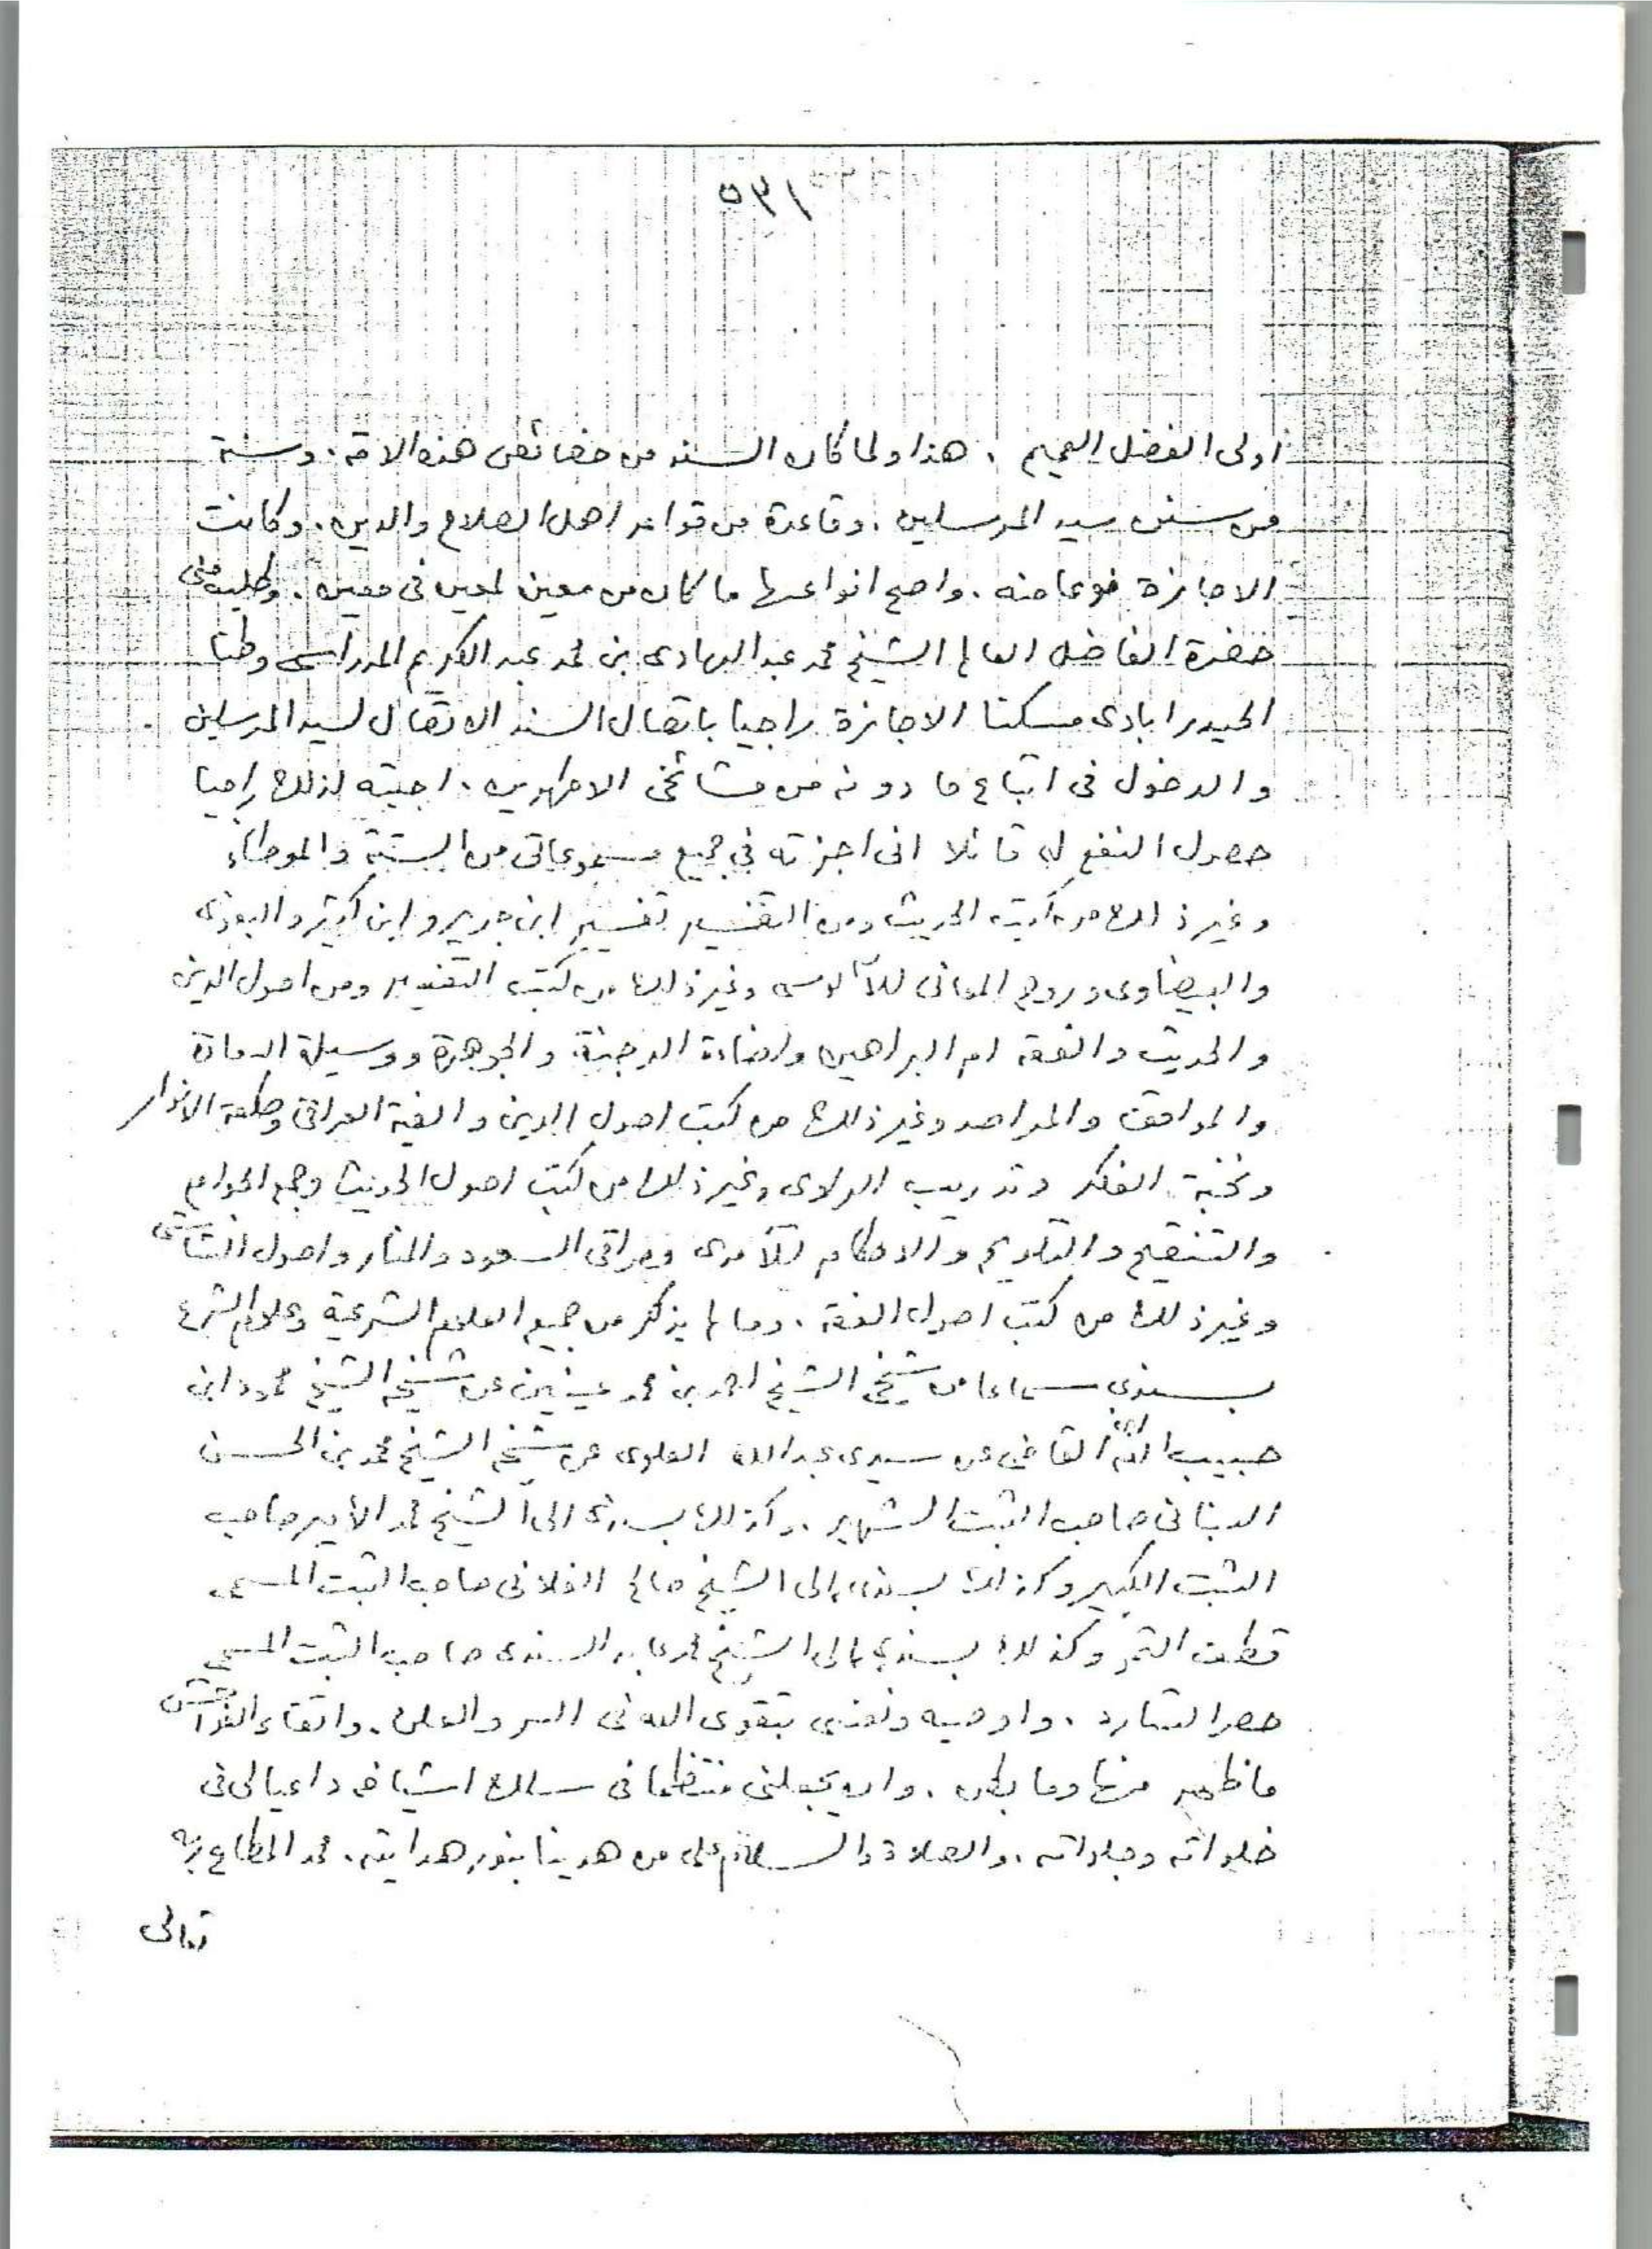 ٥٣١
اولى الفضل العميم . هذا ولما كان السند من خصائص هذه الامة . وسنة
من سنن سيد المرسلين . وقاعدة من قواعد اهل الصلاح والدين . وكانت
الاجازة نوعا منه . واصح انواعها ما كان من معين لمعين فى معين . وطلب منى
حضرة الفاضل العالم الشيخ محمد عبد الهادى بن محمد عبد الكريم المدراسى وطنا
الحيدرابادى مسكنا الاجازة راجيا باتصال السند الاتصال لسيد المرسلين
والدخول فى اتباع ما دونه من مشائخى الاطهرين . اجبته لذلك راجيا
حصول النفع له قائلا انى اجزته في جميع مسموعاتى من الستة والموطاء
وغير ذلك من كتب الحديث ومن التفسير تفسير ابن جرير وابن كثير والبغوى
والبيضاوى وروح المعانى للآلوسى وغير ذلك من كتب التفسير ومن اصول الدين
والحديث والفقه ام البراهين واضاءة الدجنة والجوهرة ووسيلة السعادة
والمواقف والمراصد وغير ذلك من كتب اصول الدين والفية العراقى وطلعة الانوار
ونخبة الفكر وتدريب الراوى وغير ذلك من كتب اصول الحديث وجمع الجوامع
والتنقيح والتلويح والاحكام للآمدى ومراقى السعود والمنار واصول الشاشى
وغير ذلك من كتب اصول الفقه . وما لم يذكر من جميع العلوم الشرعية وعلوم الشرع
بسندى سماعا من شيخى الشيخ احمد بن محمد عينين عن شيخه الشيخ محمود ابن
حبيب الله القاضى عن سيدى عبد الله العلوى عن شيخه الشيخ محمد بن الحسن
البنانى صاحب الثبت الشهير . وكذلك بسندى الى الشيخ محمد الأمير صاحب
الثبت الكبير وكذلك بسندى الى الشيخ صالح الفلانى صاحب الثبت المسمى
قطف الثمر وكذلك بسندى الى الشيخ محمد عابد السندى صاحب الثبت المسمى
حصر الشارد . واوصيه ونفسى بتقوى الله فى السر والعلن . واتقاء الفواحش
ما ظهر منها وما بطن . وان يجعلنى منتظما فى سلك اشياخه داعيا لى فى
خلواته وجلواته . والصلاة والسلام على من هدينا بنور هدايته . محمد المطاع بربه
تعالى